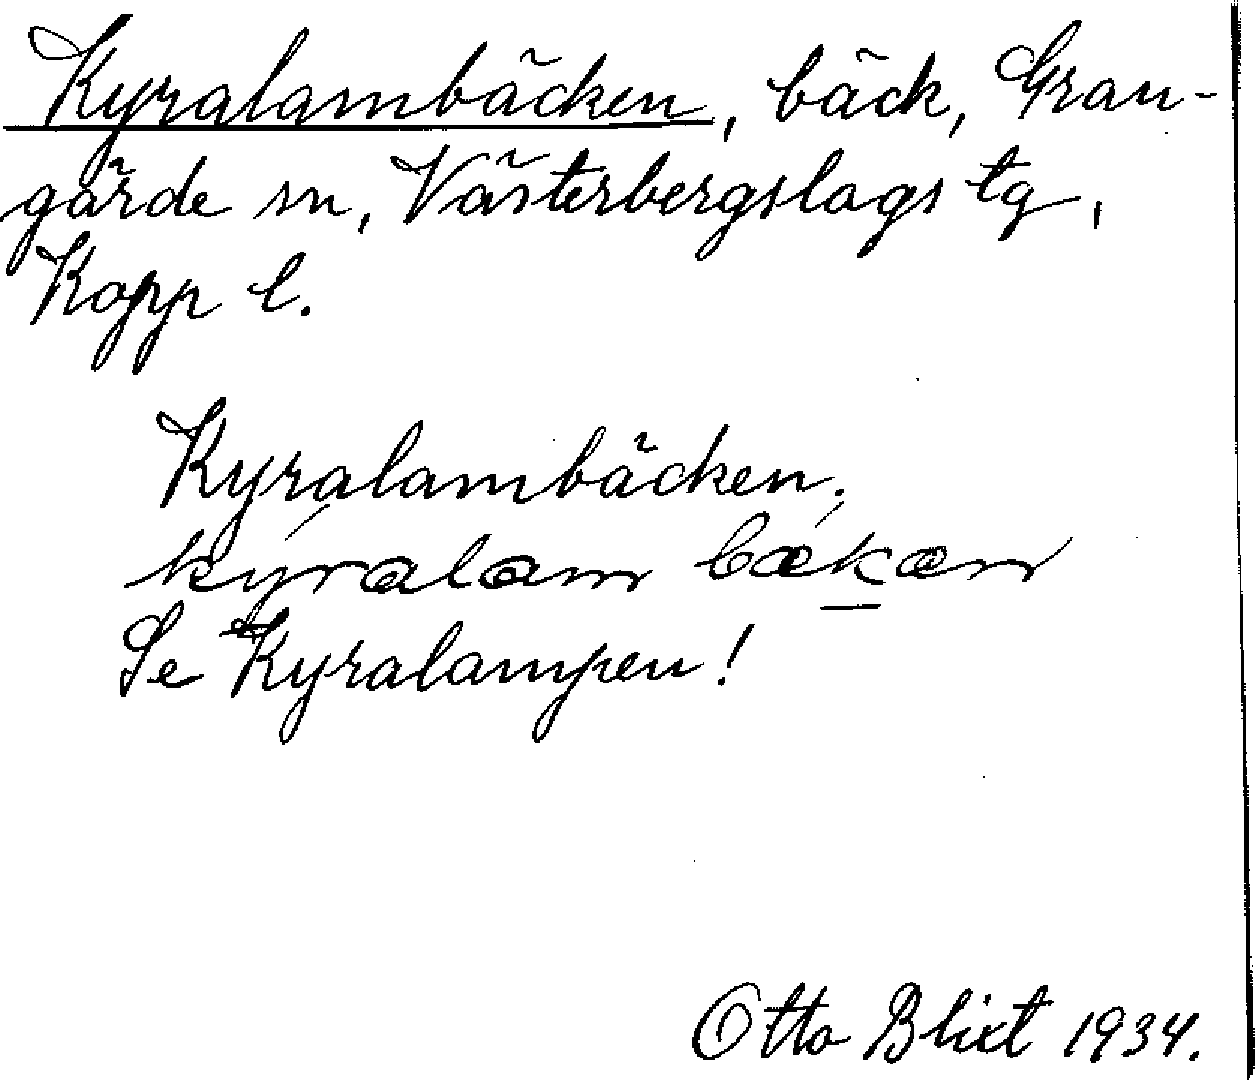 Kyralambäcken, bäck, Gran-
gärde sn, Västerbergslags tg,
Kopp l.
Kyralambäcken.
kýralam bækæn
Se Kyralampen!
Otto Blixt 1934.